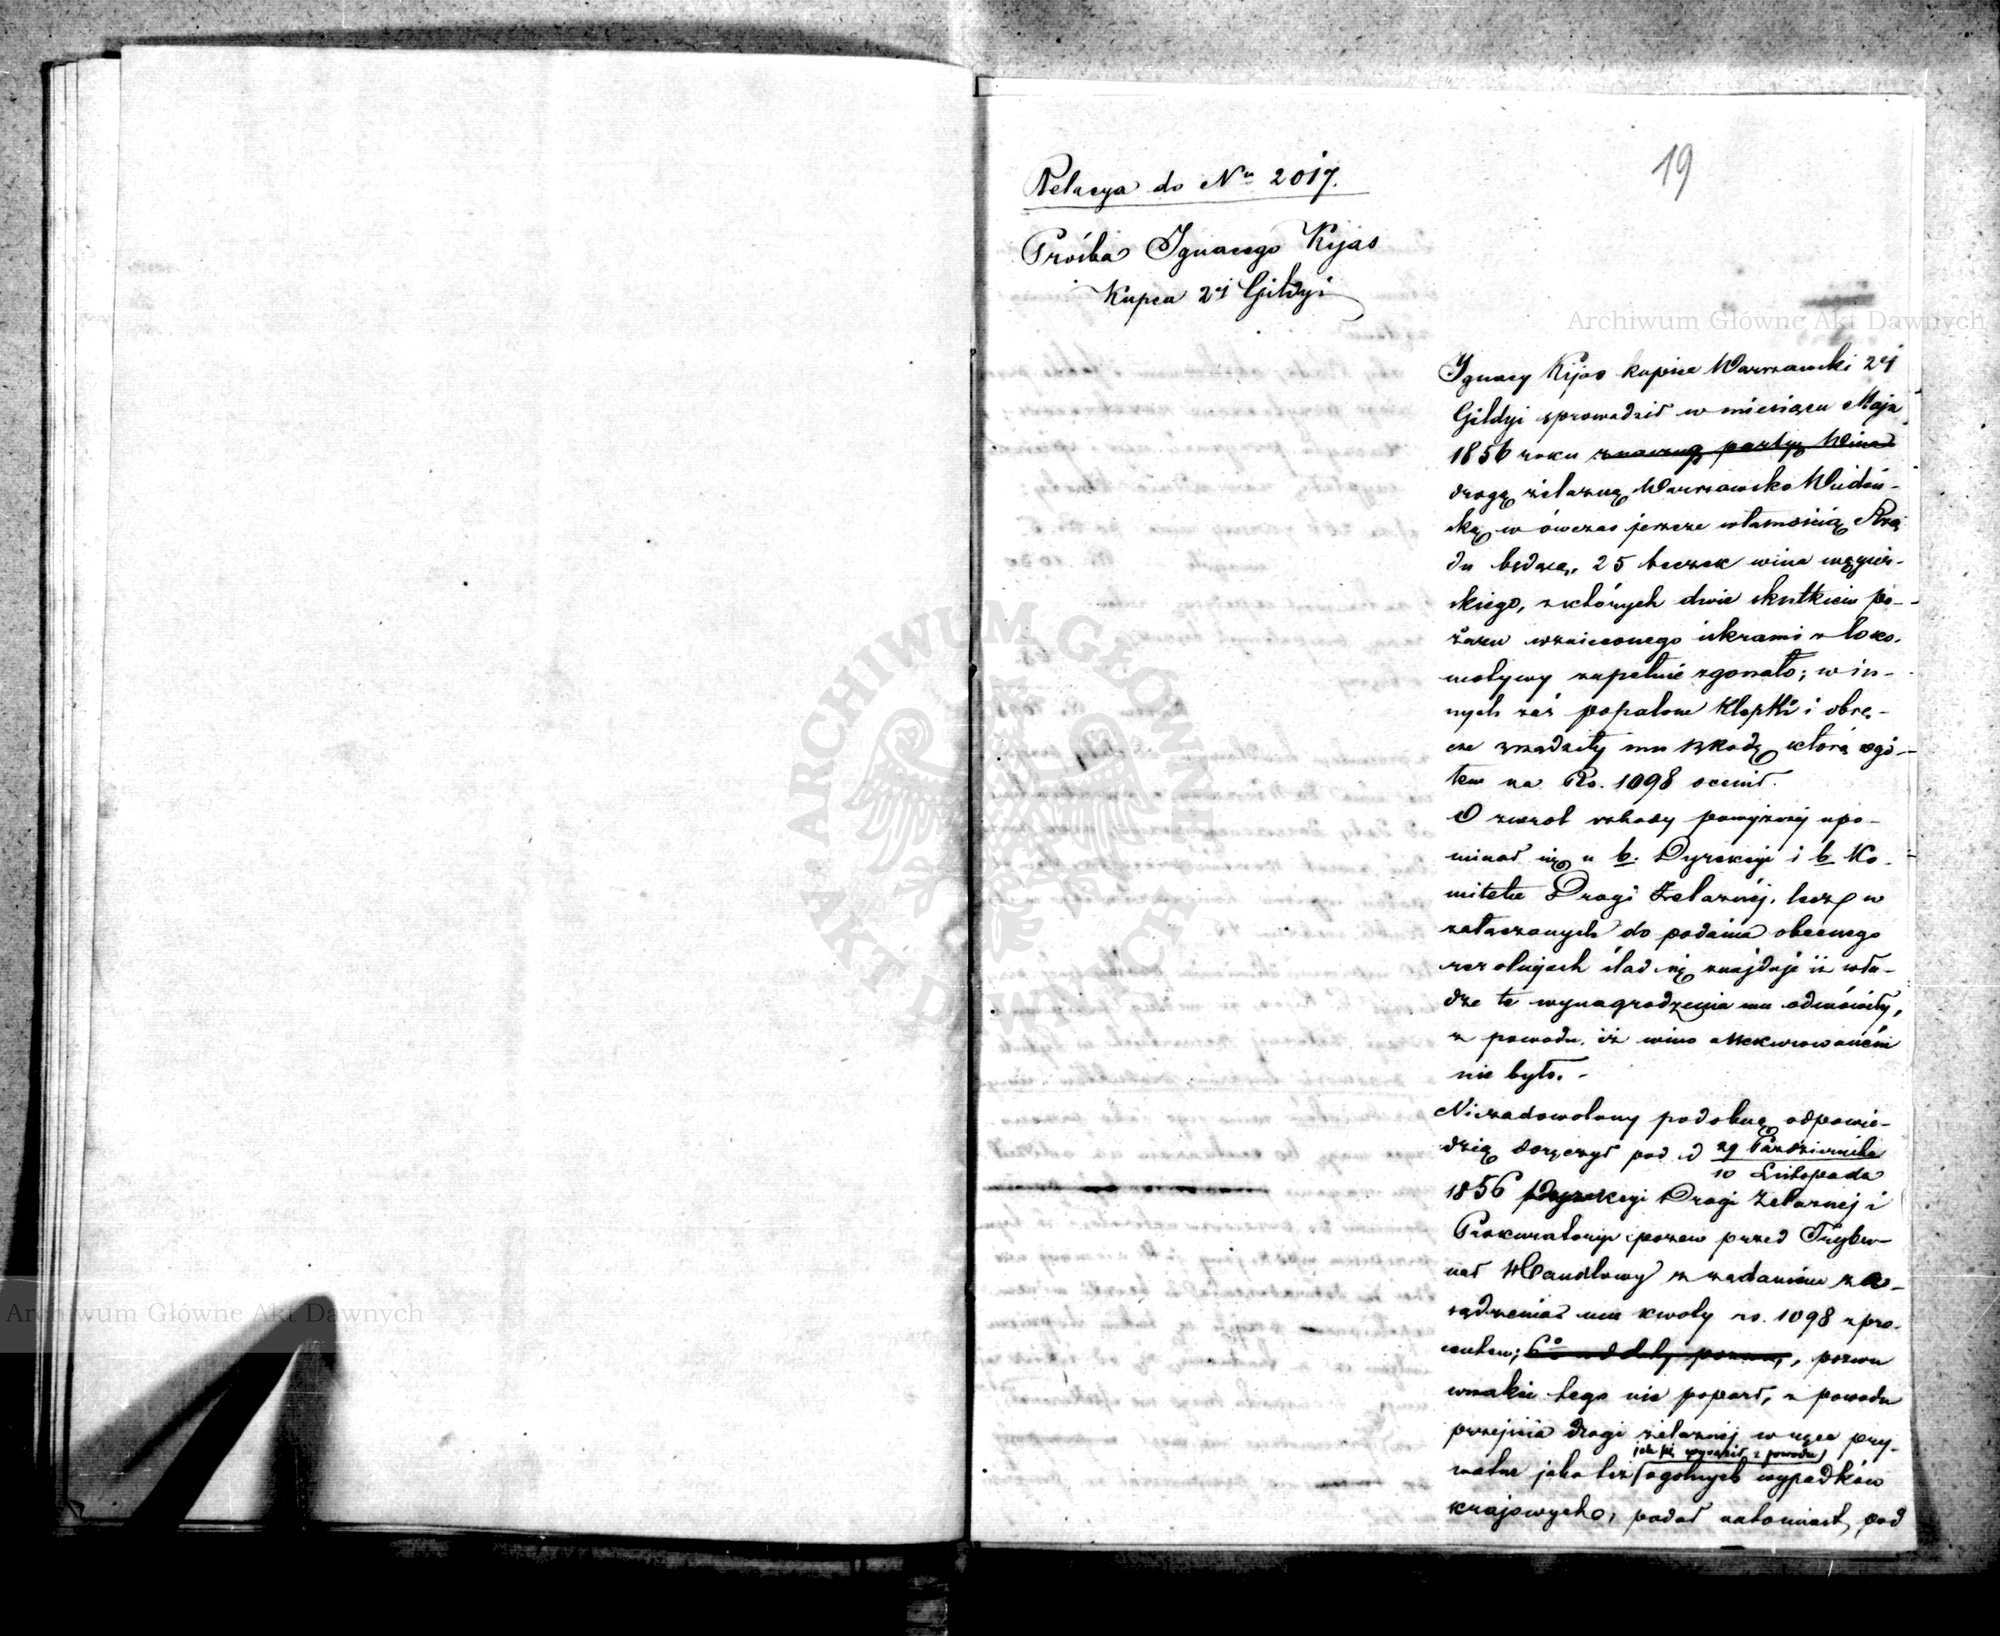 19
Relacya do Nru 2017.
Prośba Ignacego Kijas
Kupca 2éj Gildyi
Ignacy Kijas kupiec Warszawski 2éj
Gildyi sprowadził w miesiącu Maju
1856 roku znaczną partyę Wina
drogą żelazną Warszawsko Wiedeń-
ską w ówczas jeszcze własnością Rzą
du będącą, 25 beczek wina węgier-
skiego, z których dwie skutkiem po-
żaru wznieconego iskrami z loko-
motywy zupełnie zgorzało; w in-
nych zaś popalone klepki i obrę-
cze zrządziły mu szkodę którą ogó-
łem na Rs. 1098 ocenił.
O zwrot szkody powyższéj upo-
minał się u b. Dyrekcyi i b. Ko-
mitetu Drogi Żelaznéj, lecz w
załączonych do podania obecnego
rezolucjach ślad się znajduje iż wła-
dze te wynagrodzenia mu odmówiły,
z powodu, iż wino assekurowaném
nie było. -
Niezadowolony podobną odpowie-
dzią doręczył pod d 29 Października
10 Listopada
1856 Dyrekcyi Drogi Żelaznej i
Prokuratoryi pozew przed Trybu-
nał Handlowy z żądaniem za-
sądzenia mu kwoty rs. 1098 z pro-
centem; 6% od daty pozwu, pozwu
wszakże tego nie poparł, z powodu
przejścia drogi żelaznéj w ręce pry-
jak się wyraził z powodu
watne jako też ogólnych wypadków
krajowych, podał natomiast pod
Archiwum Główne Akt Dawnych
Archiwum Główne Akt Dawnych
ARCHIWUM GŁÓWNE AKT DAWNYCH